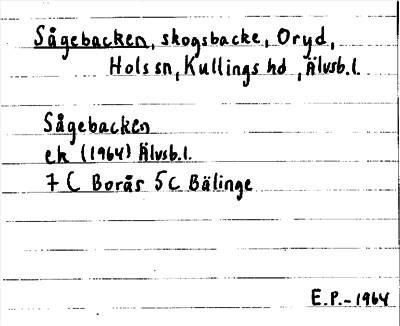 Sågebacken, skogsbacke, Oryd,
Hols sn, Kullings hd, Älvsb.l.
Sågebacken
ek (1964) Älvsb.l.
7 C Borås 5c Bälinge
E.P.-1964